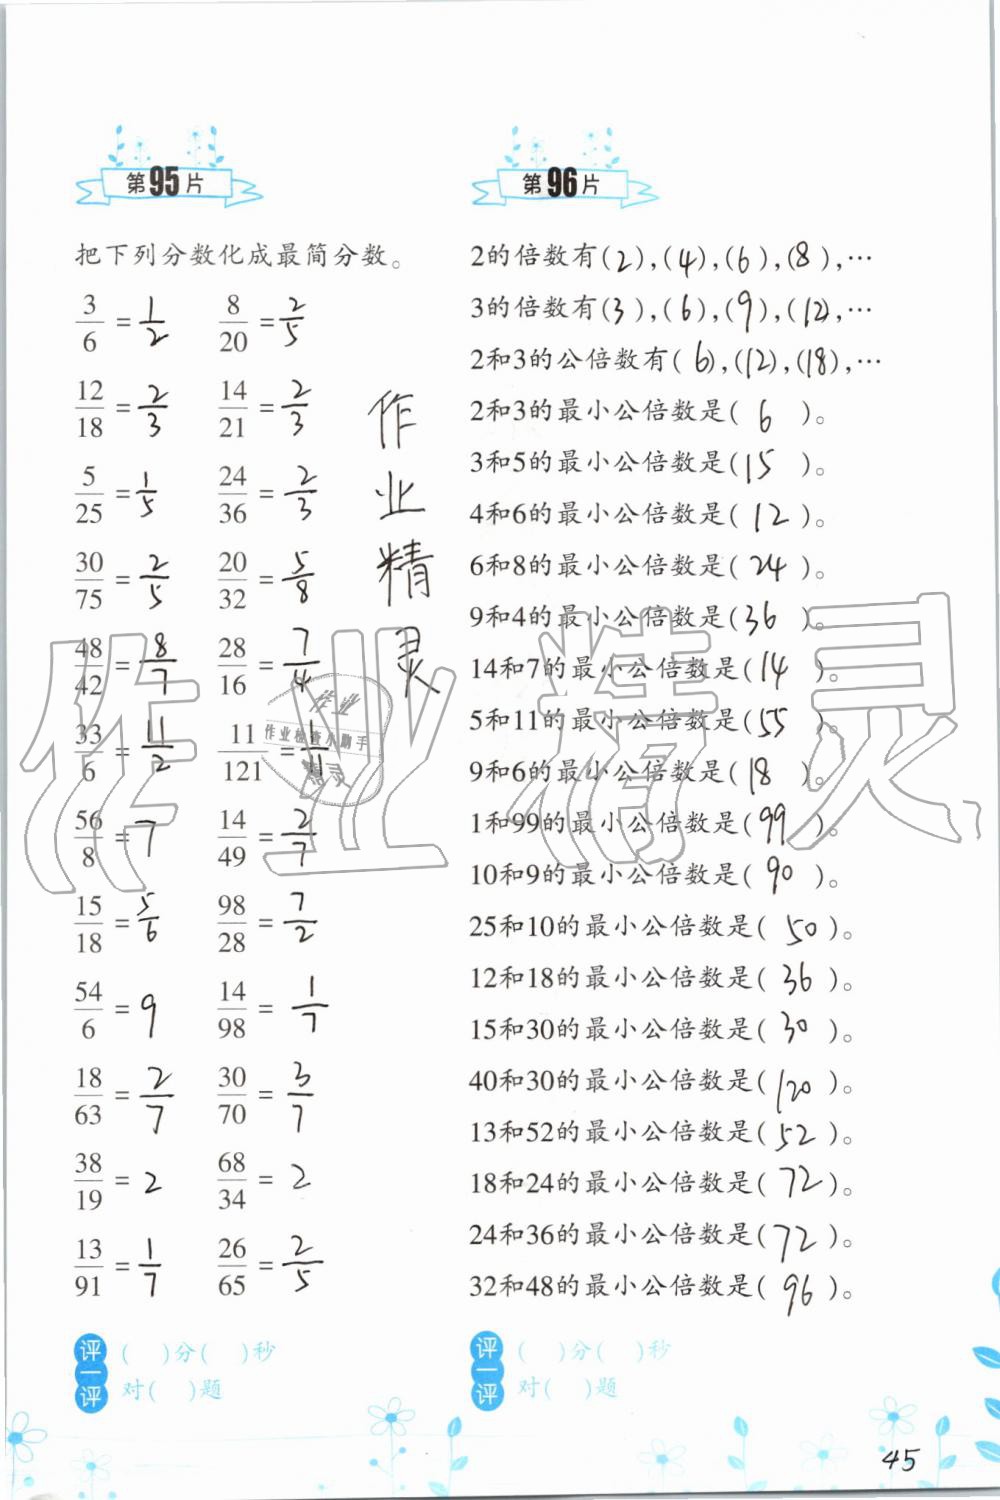 第95片
把下列分数化成最简分数。
3/6 = 1/2  8/20 = 2/5
12/18 = 2/3  14/21 = 2/3
5/25 = 1/5  24/36 = 2/3
30/75 = 2/5  20/32 = 5/8
48/42 = 8/7  28/16 = 7/4
33/6 = 11/2  11/121 = 1/11
56/8 = 7  14/49 = 2/7
15/18 = 5/6  98/28 = 7/2
54/6 = 9  14/98 = 1/7
18/63 = 2/7  30/70 = 3/7
38/19 = 2  68/34 = 2
13/91 = 1/7  26/65 = 2/5
作业精灵
评一评
( )分( )秒
对( )题
第96片
2的倍数有(2),(4),(6),(8),…
3的倍数有(3),(6),(9),(12),…
2和3的公倍数有(6),(12),(18),…
2和3的最小公倍数是(6)。
3和5的最小公倍数是(15)。
4和6的最小公倍数是(12)。
6和8的最小公倍数是(24)。
9和4的最小公倍数是(36)。
14和7的最小公倍数是(14)。
5和11的最小公倍数是(55)。
9和6的最小公倍数是(18)。
1和99的最小公倍数是(99)。
10和9的最小公倍数是(90)。
25和10的最小公倍数是(50)。
12和18的最小公倍数是(36)。
15和30的最小公倍数是(30)。
40和30的最小公倍数是(120)。
13和52的最小公倍数是(52)。
18和24的最小公倍数是(72)。
24和36的最小公倍数是(72)。
32和48的最小公倍数是(96)。
评一评
( )分( )秒
对( )题
45
作业精灵
作业
作业检查小助手
精灵